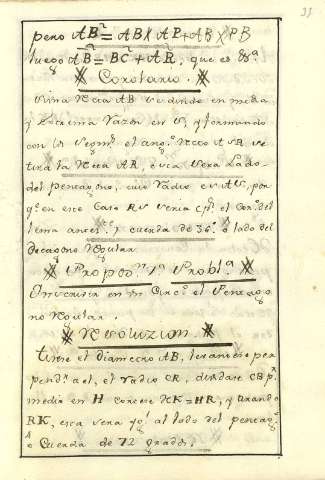 33
pero AB² = AB X AP + AB X PB
luego AB² = BC² + AR², que es &ª
Corolario.
Si una recta AB se divide en media
y estrema razon en V, y formando
con los segmᵗˢ el angº recto AVR se
tira la recta AR, esta sera lado
del pentagono, cuio radio es AV, por
qᵉ en este caso RV seria el del
lema antecᵗᵉ y cuerda de 36º ò lado del
decagono regular.
Proposⁿ 1ª Problª
Inscrivir en un Circº el Pentago
no regular.
Resoluzion
tirese el diametro AB, levantese per
pendʳ a el, el radio CR, dividase CB pʳ
medio en H cortese HK = HR, y tirando
RK, esta sera ygˡ al lado del pentagº
ò Cuerda de 72 grados.